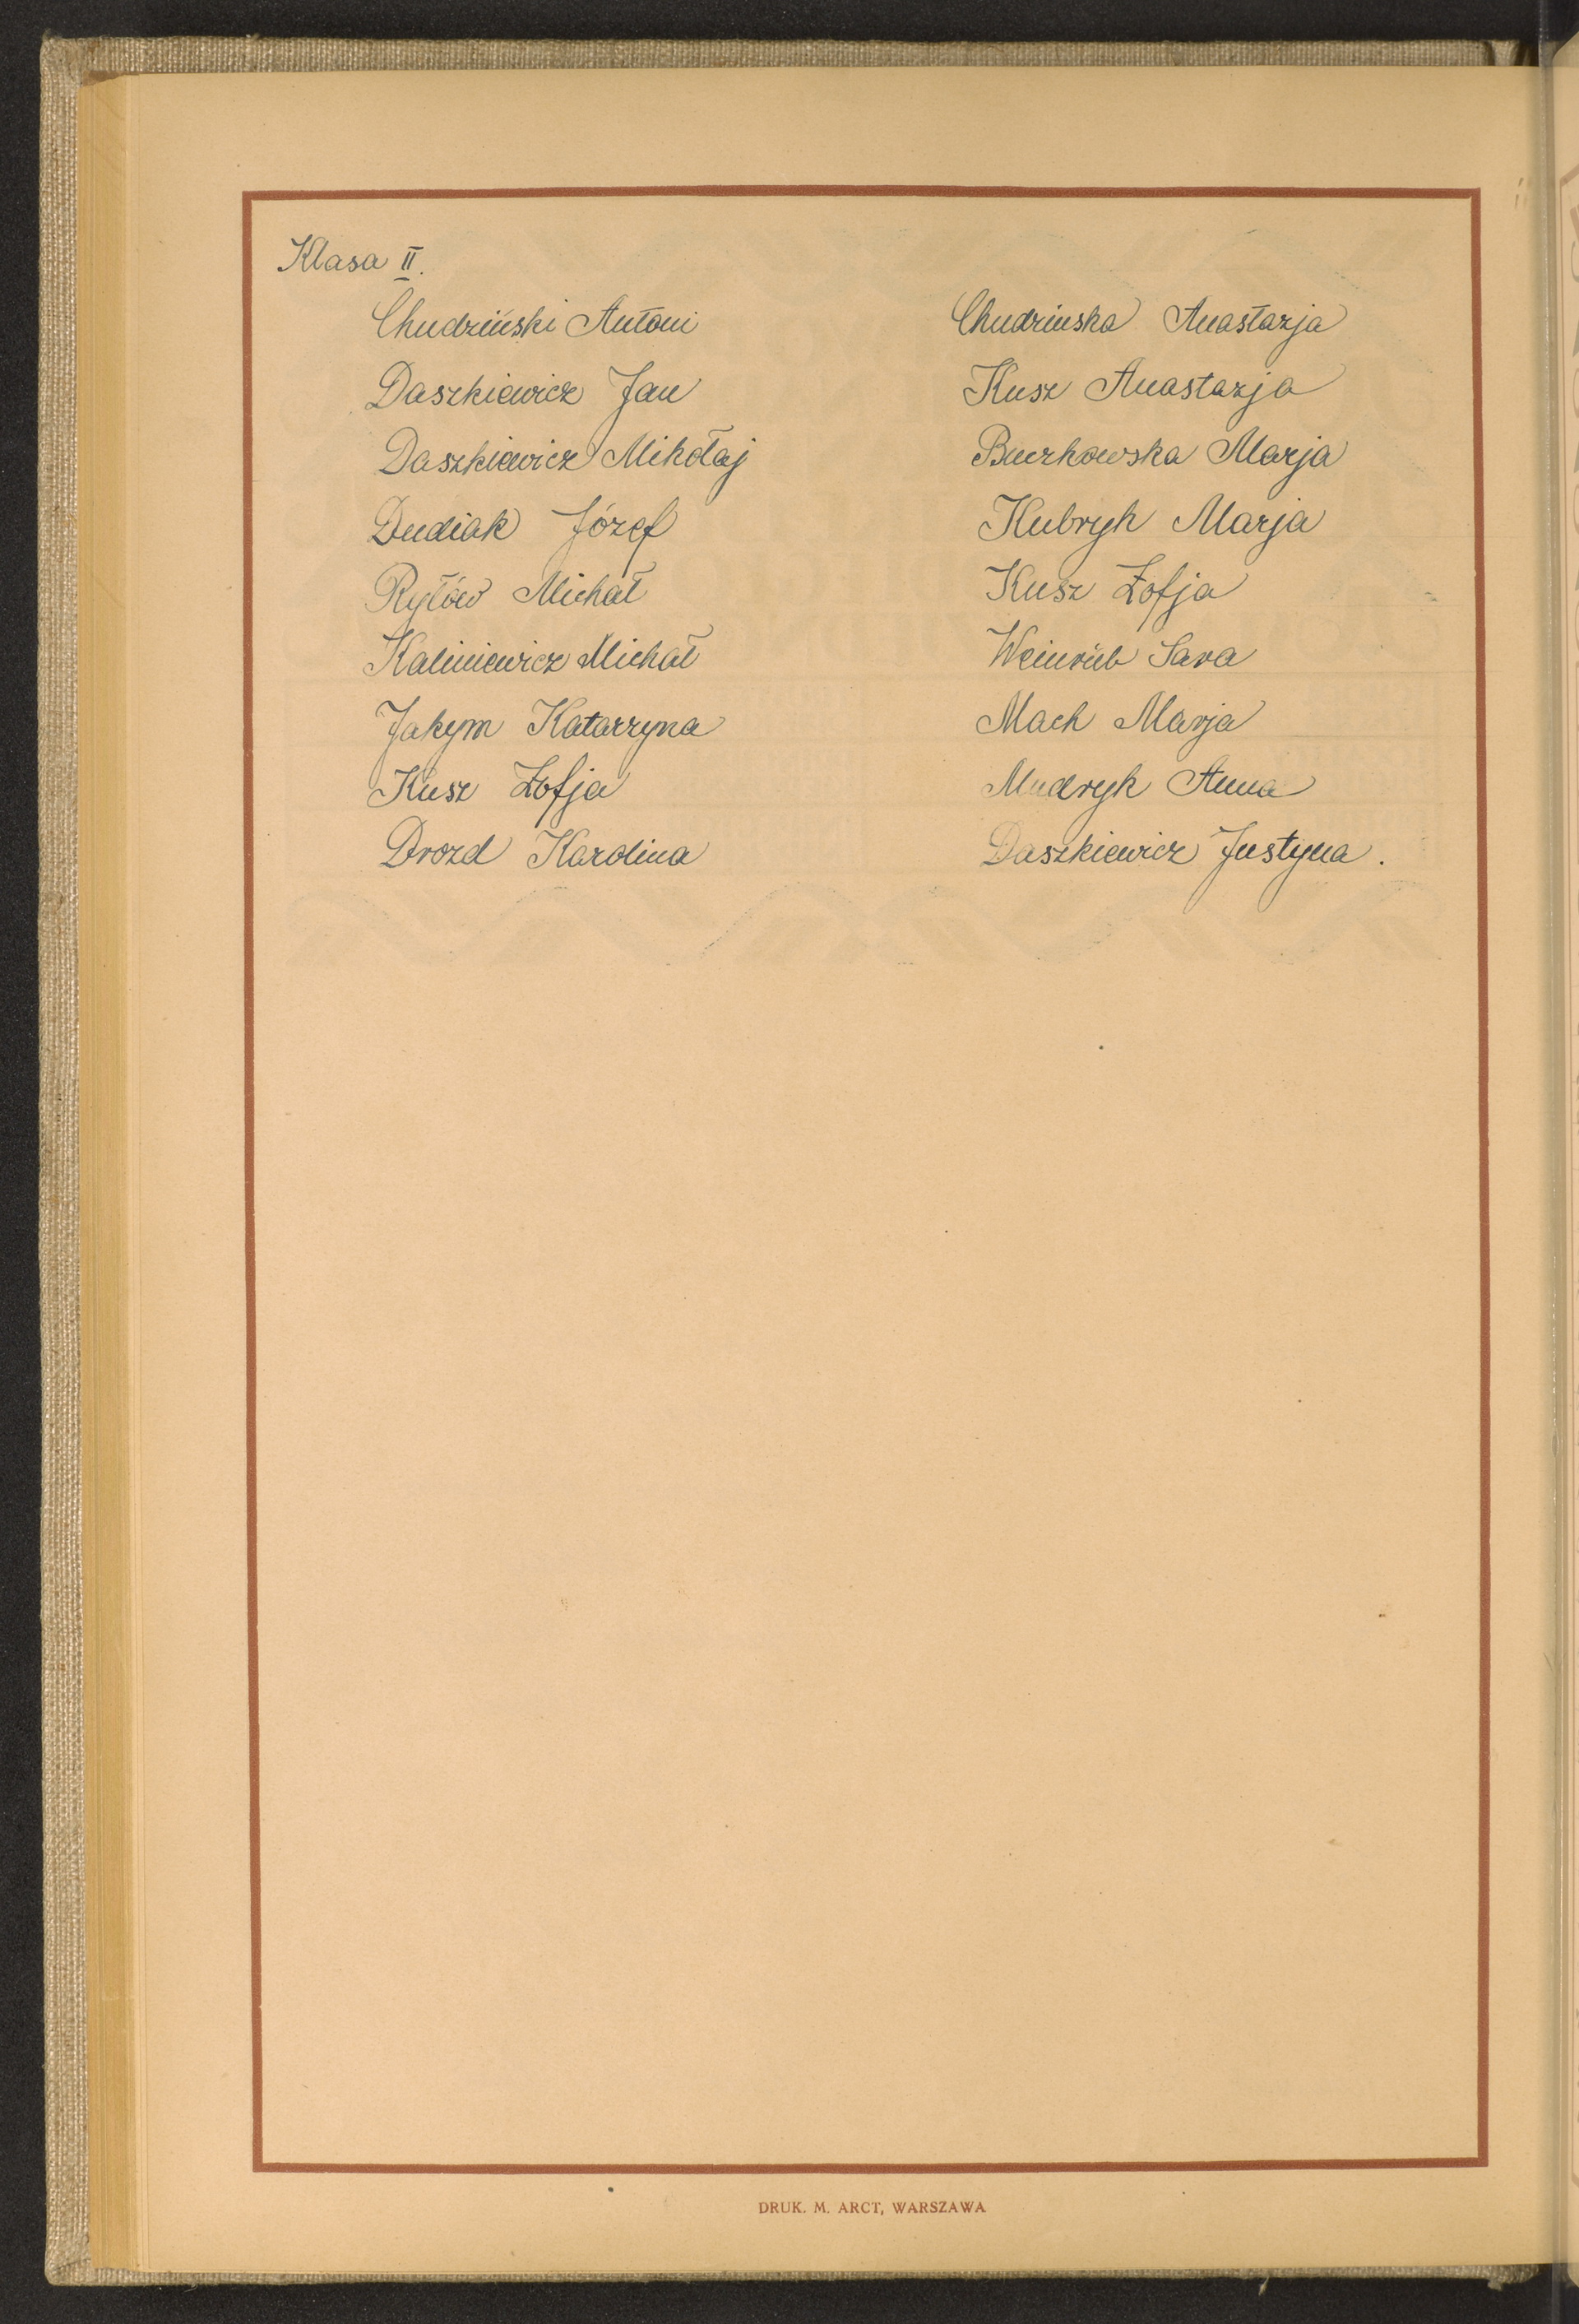 Klasa II.
Chudziński Antoni
Daszkiewicz Jan
Daszkiewicz Mikołaj
Dudiak Józef
Ryłów Michał
Kaliniewicz Michał
Jakym Katarzyna
Kusz Zofja
Drozd Karolina
Chudzinska Anastazja
Kusz Anastazja
Marja
Kubryk Marja
Kusz Zofja
Weinrüb Sara
Mach Marja
Mudryk Anna
Daszkiewicz Justyna.
DRUK. M. ARCT, WARSZAWA